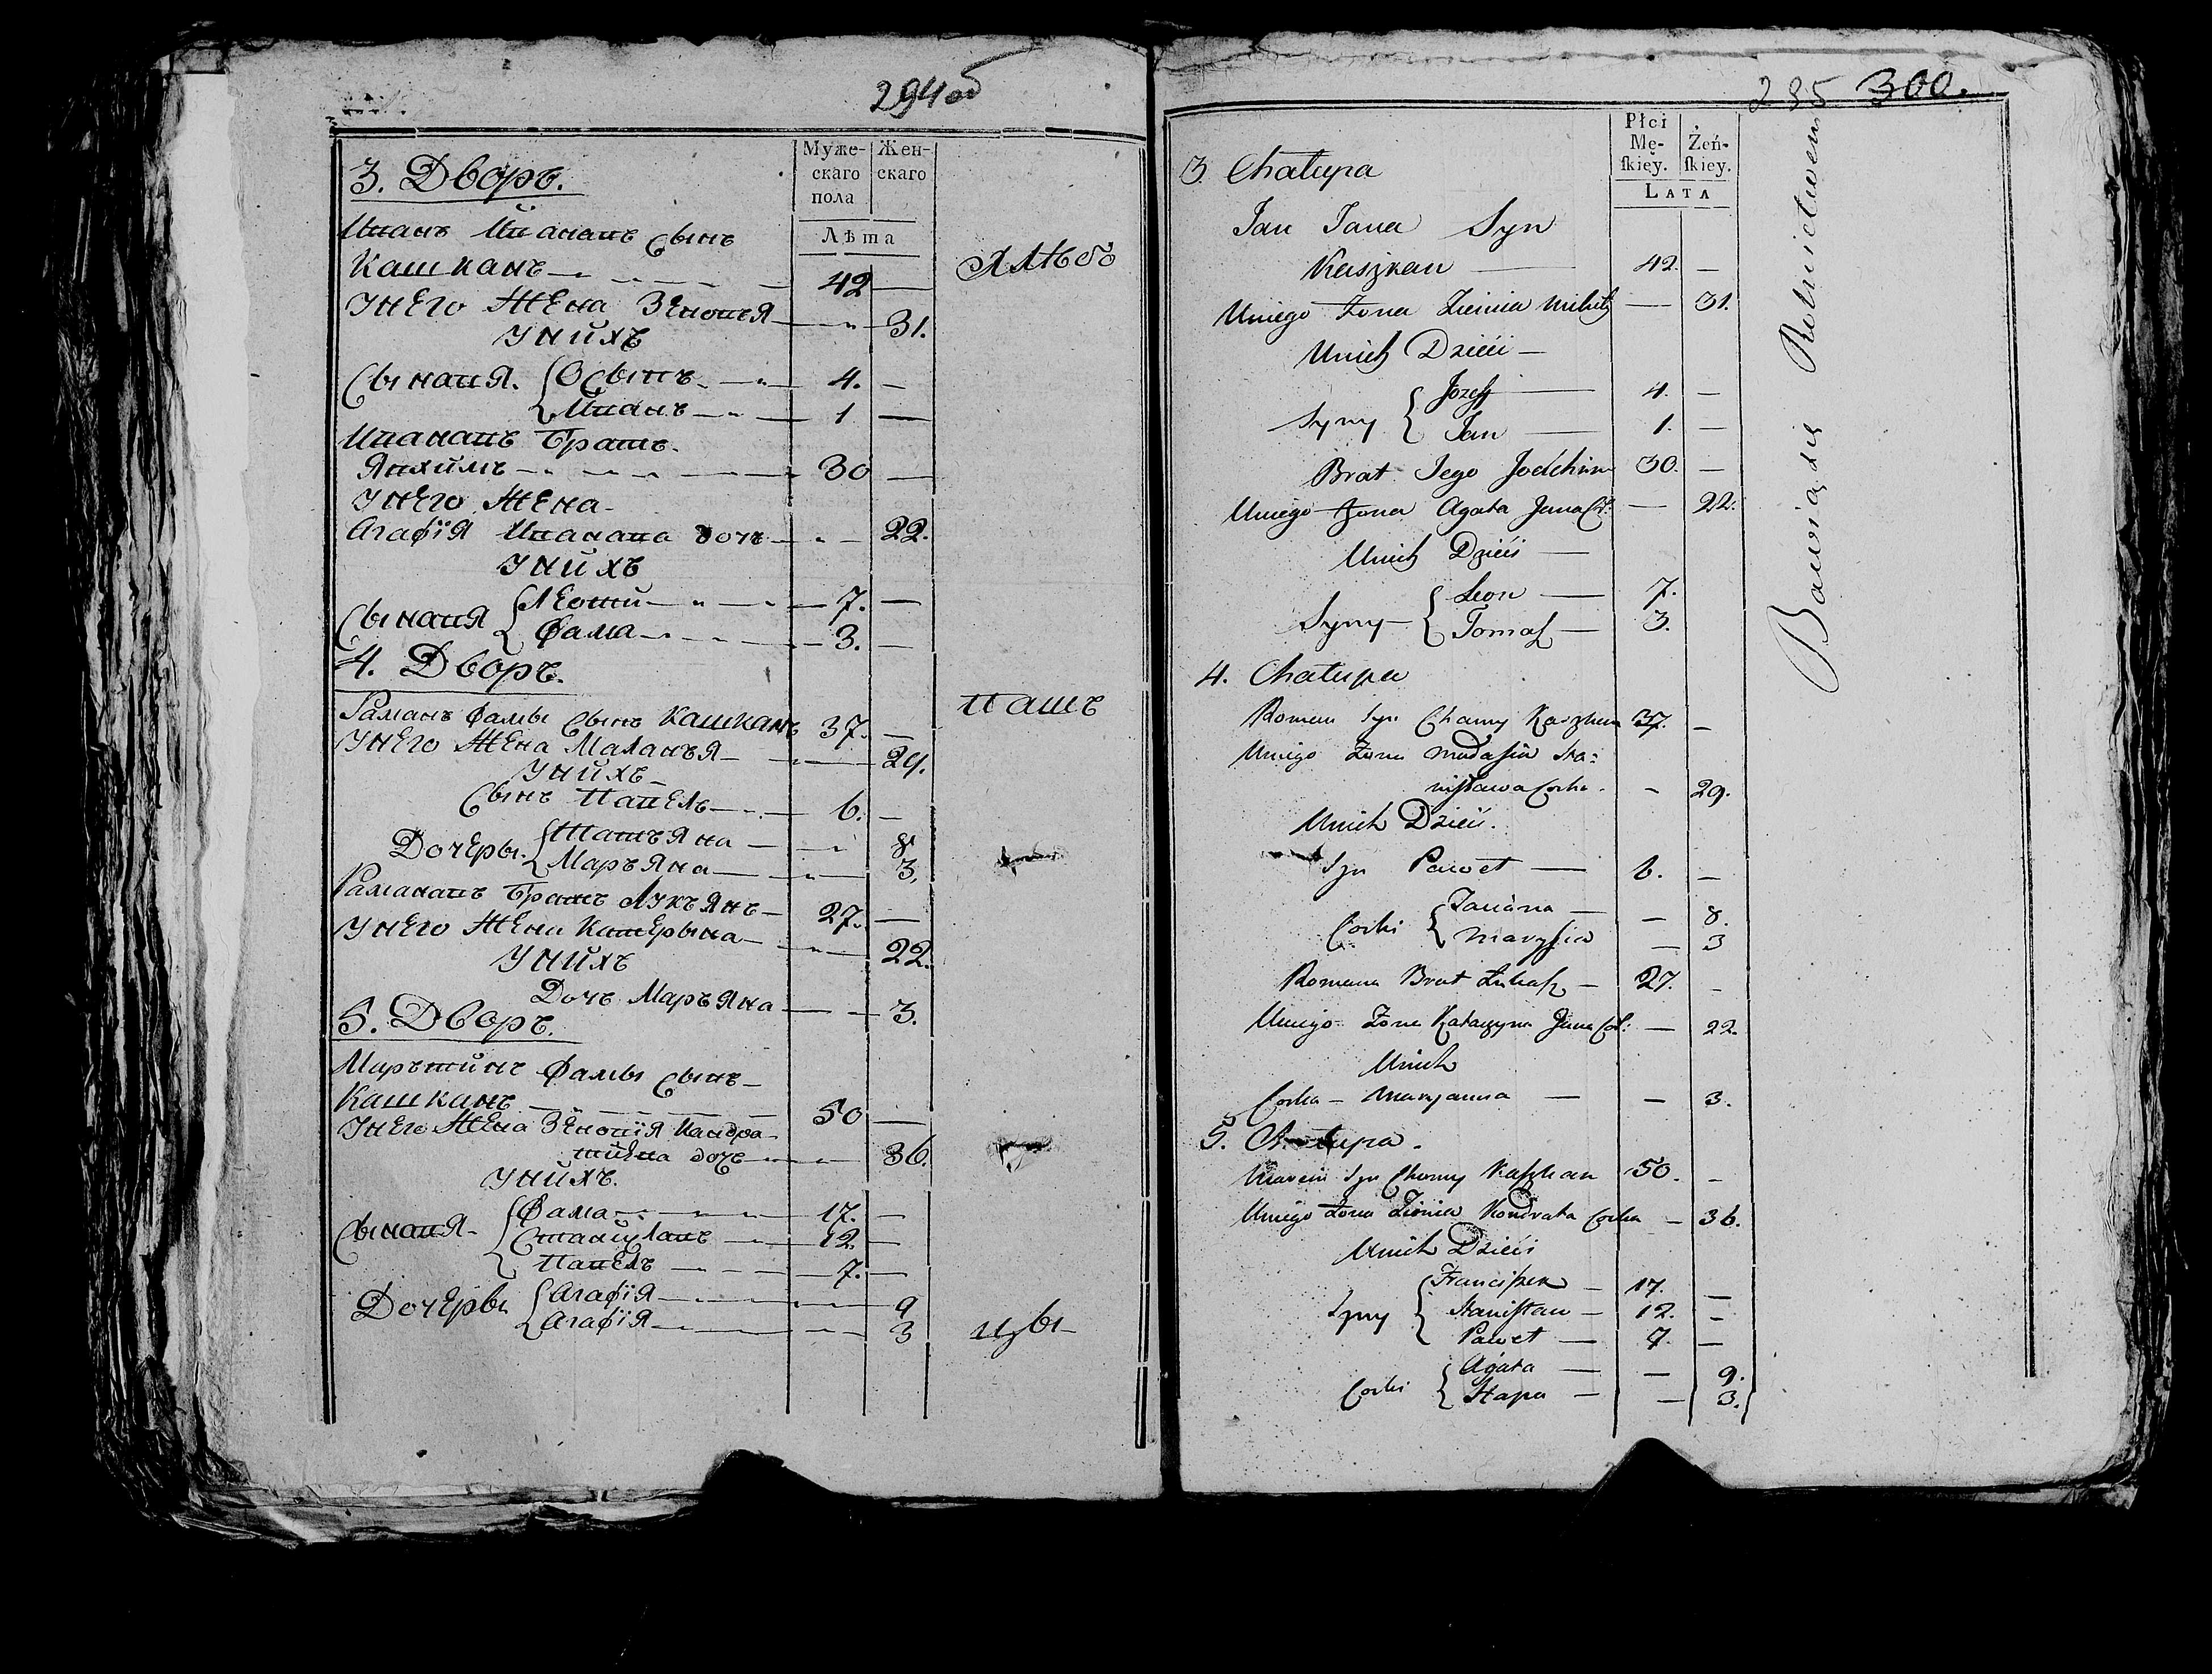 294об
3. Дворъ.
Муже-
скаго
пола
Жен-
скаго
Лѣта
Иванъ Иванавъ Сынъ
Кашканъ 42 —
Унего Жена Зеновья — 31.
Унихъ
Сынавя. Осыпъ 4. —
Иванъ 1 —
Иванавъ братъ.
Яхимъ 30 —
Унего Жена
Агафія Иванава дочъ — 22.
Унихъ
Сынавя Леоти 7. —
Фама 3. —
4. Дворъ.
Раманъ Фамы Сынъ Кашканъ 37. —
Унего Жена Маланъя — 29.
Унихъ
Сынъ Павелъ 6. —
Дочеры. Татъяна — 8
Маръяна — 3.
Раманавъ братъ Лукъянъ 27. —
Унего Жена Катерына — 22.
Унихъ
Дочъ Маръяна — 3.
5. Дворъ.
Марътинъ Фамы Сынъ
Кашканъ 50 —
Унего Жена Зеновія Кандра-
тиева дочъ — 36.
Унихъ.
Сынавя Фама 17. —
Станиславъ 12. —
Павелъ 7. —
Дочеры Агафія — 9
Агафія — 3
пашъ
цы
295 300.
3 Chałupa
Płci
Mę-
skiey.
Żeń-
skiey.
LATA
Jan Jana Syn
Kaszkan 42. —
Uniego Zona Zienia Mikity — 31.
Unich Dzieci —
Syny Jozeff 4. —
Jan 1. —
Brat Jego Joachim 30. —
Uniego Zona Agata Jana Cór: — 22.
Unich Dzieci —
Syny Leon — 7.
Tomasz — 3.
4. Chałupa
Roman Syn Chomy Kaszkan 37. —
Uniego Zona Małasia Sta=
nisława Corka. — 29.
Unich Dzieci.
Syn Paweł — 6. —
Corki Taciana — — 8.
Marysia — 3
Romana Brat Łukasz — 27. —
Uniego Zona Katarzyna Jana Cor: — 22.
Unich
Corka — Maryanna — — 3.
5. Chałupa.
Marcin Syn Chomy Kaszkan 50. —
Uniego Zona Zienia Kondrata Corka — 36.
Unich Dzieci
Syny Franciszek — 17. —
Stanisław — 12. —
Paweł — 7. —
Corki Agata — — 9.
Hapa — — 3.
Bawią się Rolnictwem